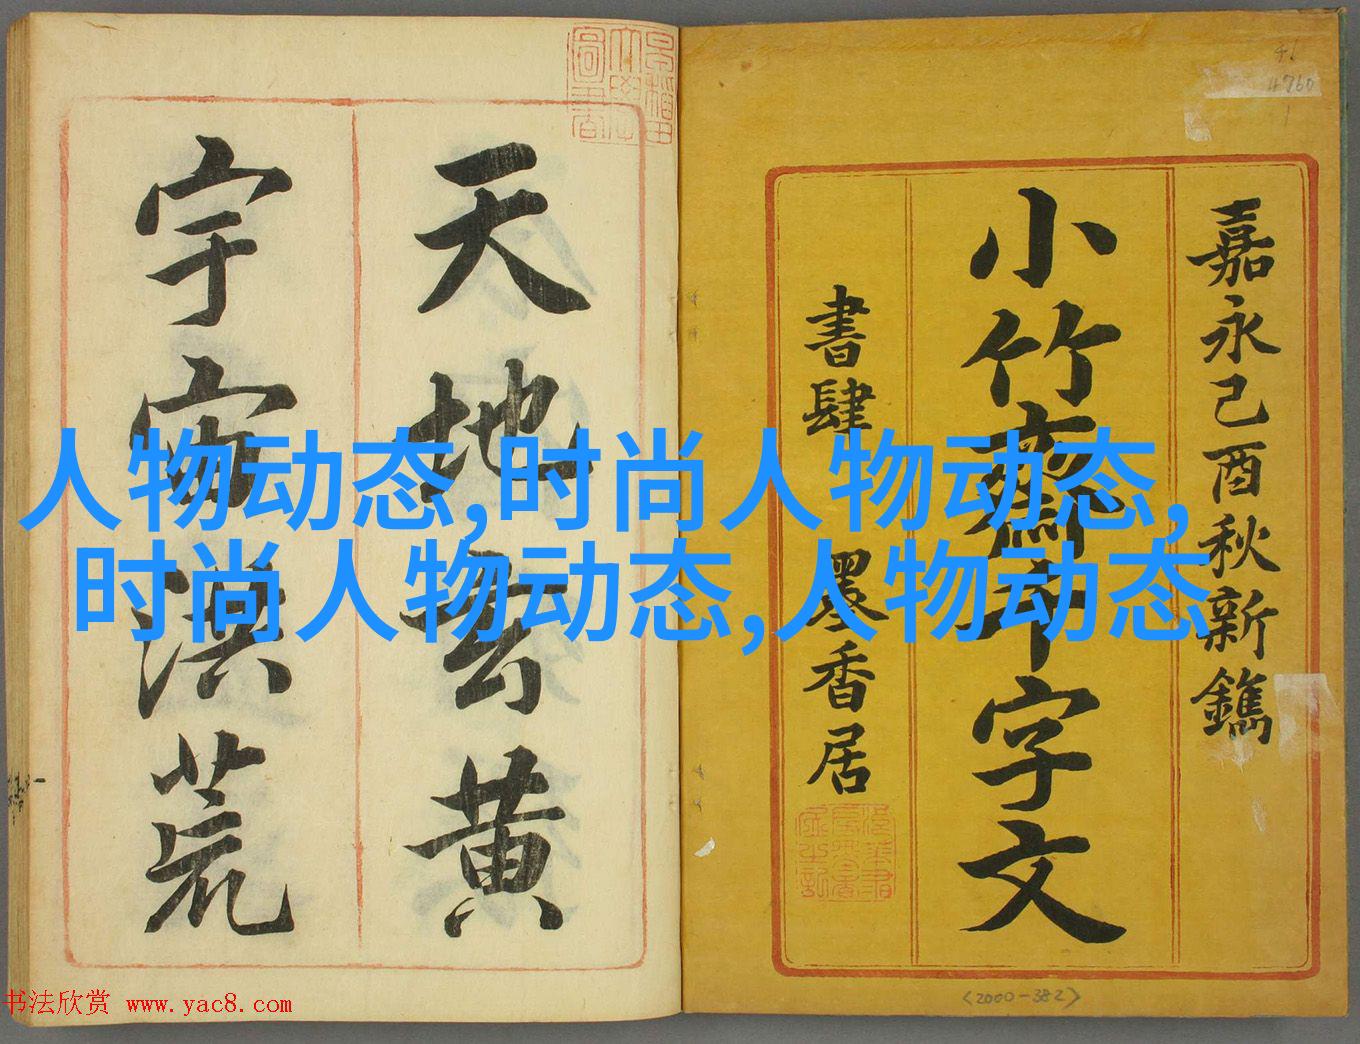 嘉永己酉秋新鐫
小竹齋千字文
書肆 墨香居
天地玄黃
宇宙洪荒
人物动态,时尚人物动态,
时尚人物动态,人物动态
46
4760
<2000-382>
书法欣赏 www.yac8.com